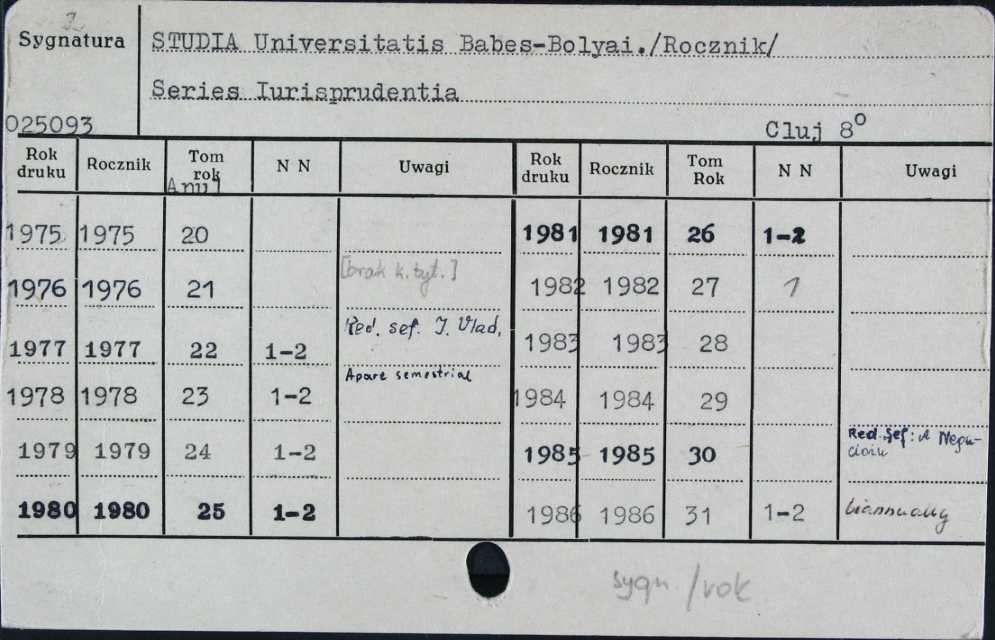 Sygnatura
STUDIA Universitatis Babes-Bolyai./Rocznik/
Series Iurisprudentia
025093
Cluj 8°
Rok druku Rocznik Tom rok N N Uwagi Rok druku Rocznik Tom Rok N N Uwagi
Anul
1975 1975 20 1981 1981 26 1-2
1976 1976 21 [brak k. tyt.] 1982 1982 27 1
1977 1977 22 1-2 Red. sef. I. Vlad, 1983 1983 28
1978 1978 23 1-2 Apare semestrial 1984 1984 29
1979 1979 24 1-2 1985 1985 30 Red. Șef: A Negu-
cioiu
1980 1980 25 1-2 1986 1986 31 1-2 biannually
sygn./rok